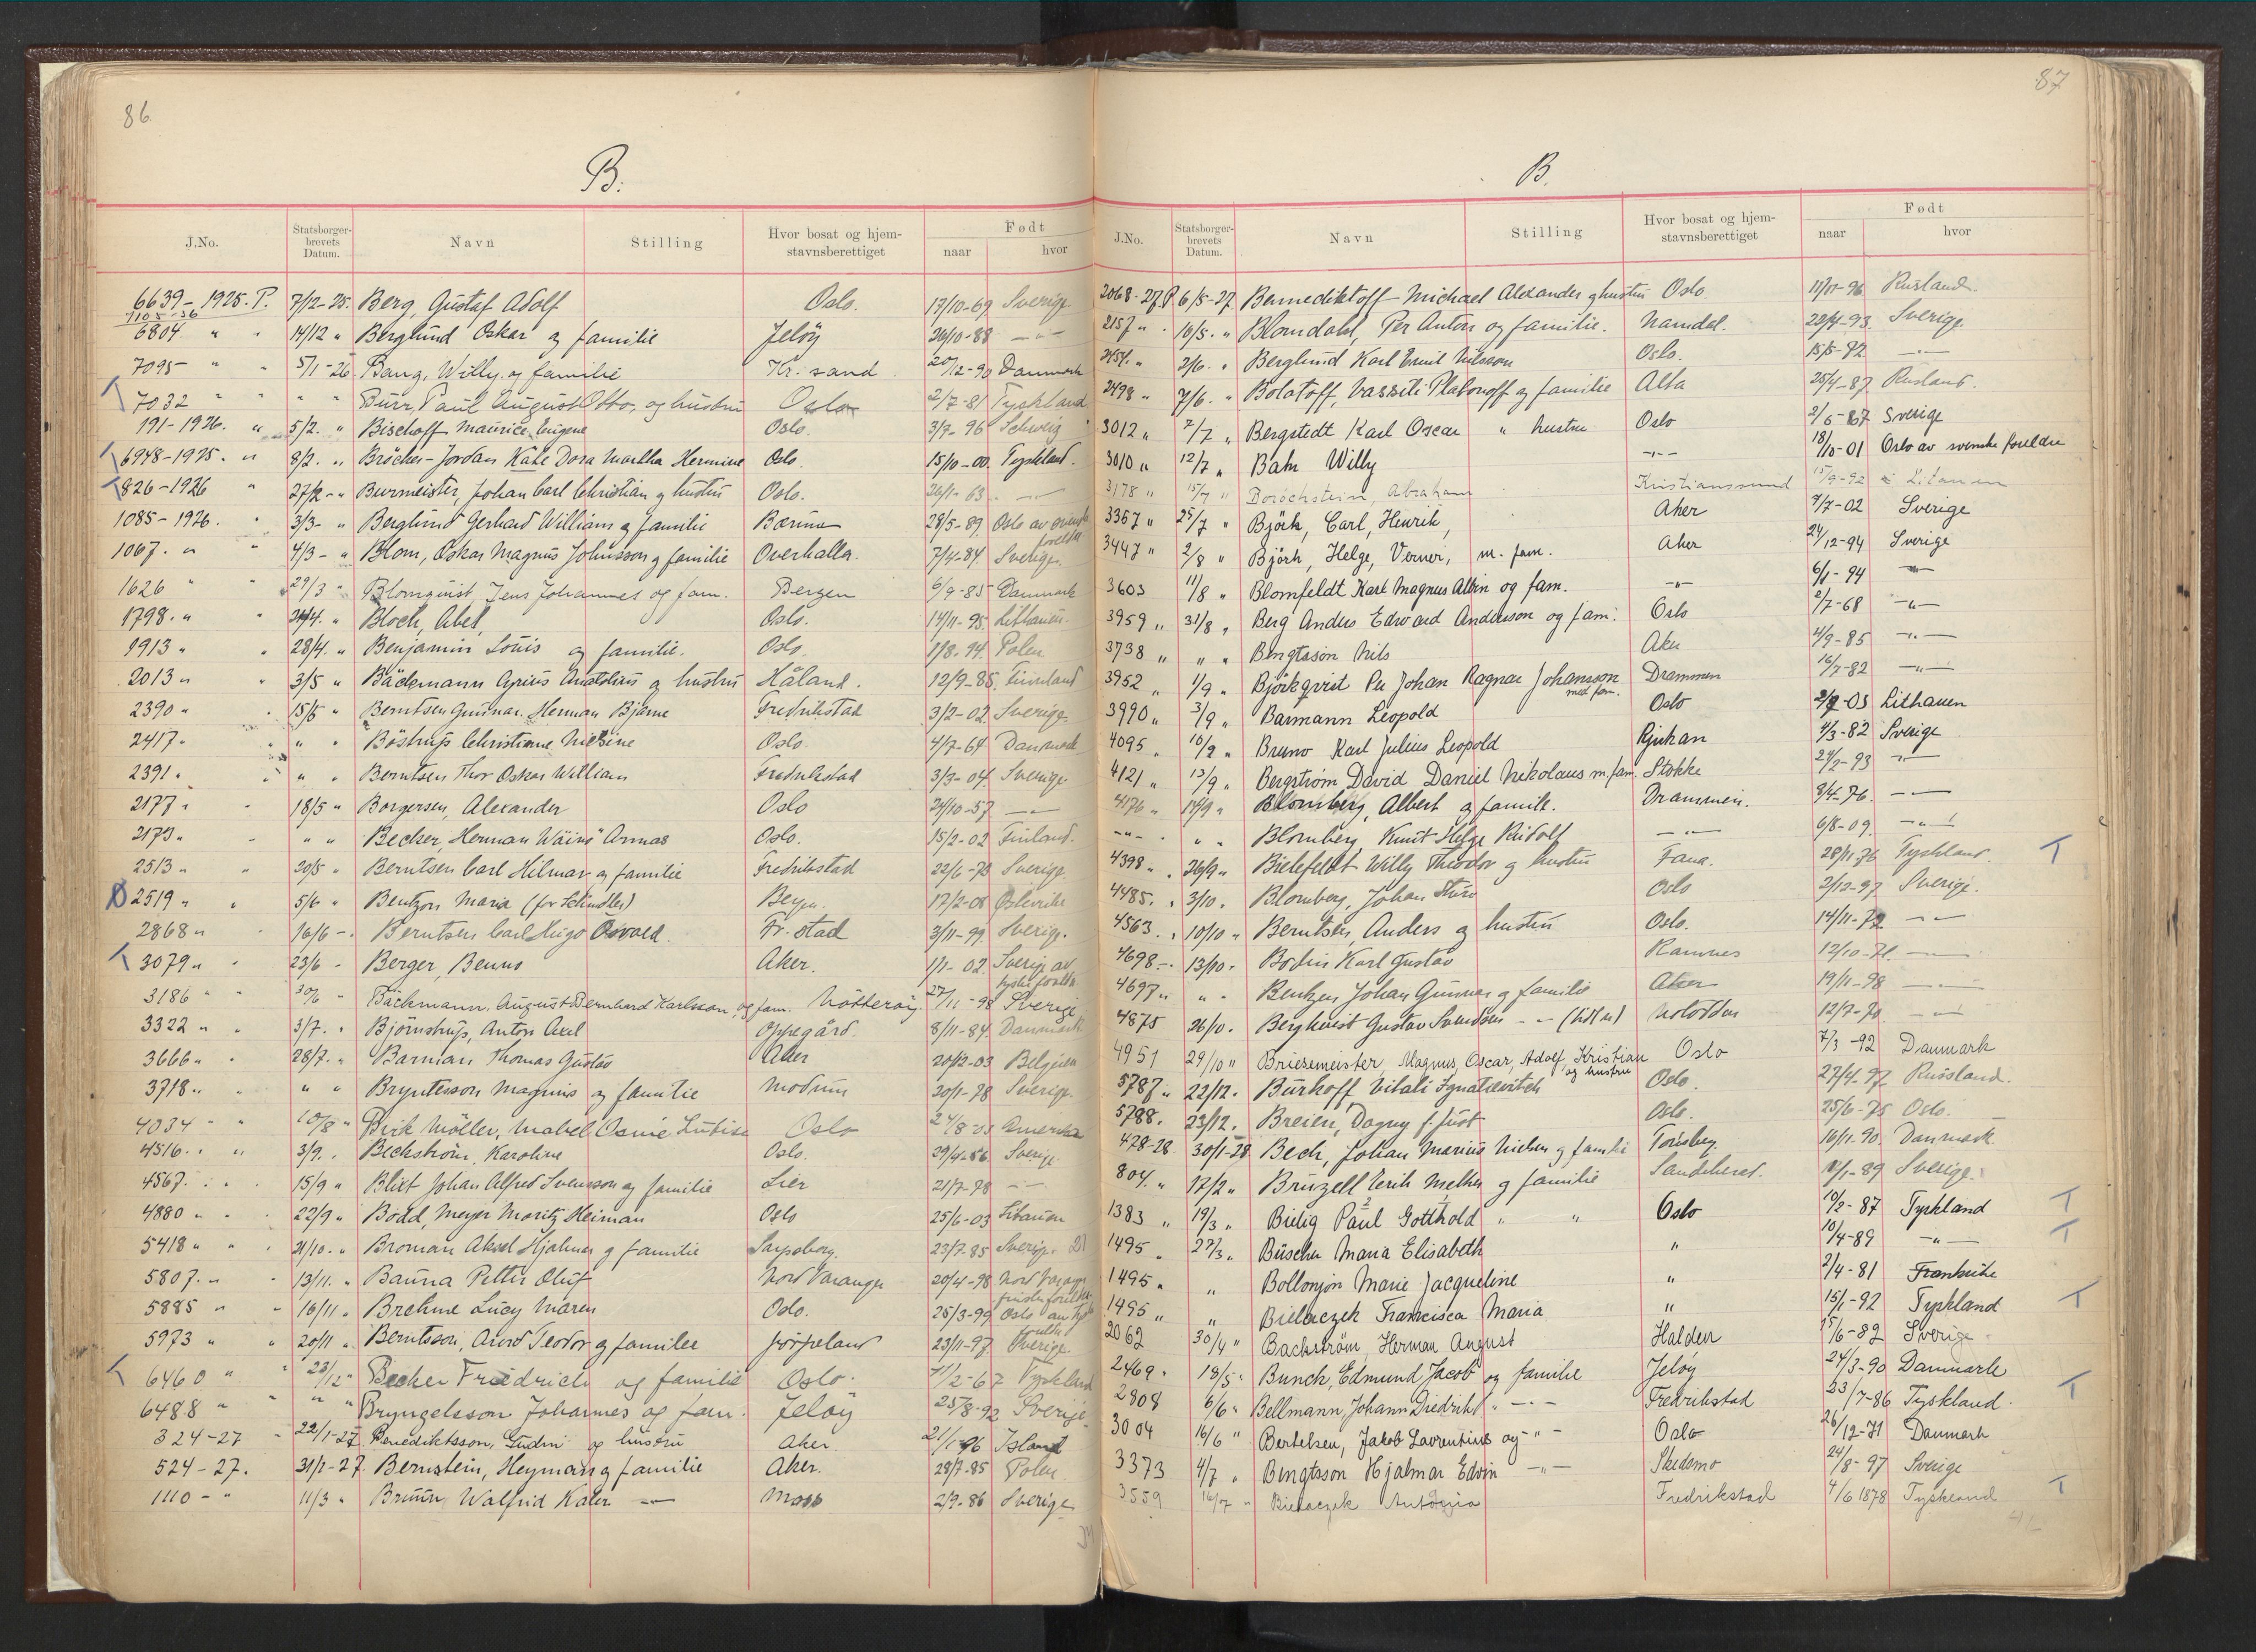 86
B.
J.No. Statsborger-brevets Datum. Navn Stilling Hvor bosat og hjem-stavnsberettiget Født naar hvor
6639-1925. P. 7/12-25. Berg, Gustaf Adolf Oslo. 13/10-69 Sverige
1105-36
6804 " " 14/12 " Berglund Oskar og familie Jeløy 26/10-88 —"—
7095 - " " 5/1-26. Bang, Willy og familie Kr. sand 20/12-90 Danmark
T 7032 " " " " Burr, Paul August Otto, og hustru Oslo 2/7-81 Tyskland
191-1926. " 5/2. " Bischoff Maurice Eugene Oslo. 3/7-96 Schweiz
T 6948-1925. " 8/2. " Bröcker-Jordan Käte Dora Martha Hermine Oslo. 15/10-00. Tyskland.
T 826-1926 " 27/2 - " Burmeister, Johan Carl Christian og hustru Oslo. 26/1-63. —"—
1085-1926. " 3/3- " Berglund Gerhard William og familie Bærum 28/5-89. Oslo av svenske foreldre
1067. " " 4/3- " Blom, Oskar Magnus Johnsson og familie Overhalla. 7/4-84. Sverige.
1626 " " 29/3 " Blomquist Jens Johannes og fam. Bergen 6/9-85 Danmark
1798. " 24/4. " Bloch, Abel, Oslo. 14/11-95. Lithauen.
1913 " " 28/4. " Benjamin Louis og familie. Oslo. 1/8. 94. Polen
2013 " " 3/5 " Bäckmann Cyrius Anatolius og hustru Håland. 12/9-85. Finnland
2390 " . 15/5 " Berntsen Gunnar Herman Bjarne Fredrikstad 3/2-02. Sverige.
2417 " " " " Böstrup Christiane Nielsine Oslo. 4/7-64 Danmark
2391. " " " Berntsen Thor Oskar William Fredrikstad 3/3-04. Sverige.
2177. " 18/5 " Borgersen, Alexander Oslo 24/10-57 —"—
2173 " - " " Becker, Herman Wäinö Armas Oslo. 15/2-02 Finland.
2513 " " 20/5 " Berntsen Carl Hilmar og familie Fredrikstad 22/6-73 Sverige.
2519 " " 5/6 " Bentzon Maria (før Schindler) Bergen. 12/2-08 Østerrike
2868 " 16/6 -. Berntsen Carl Hugo Osvald. Fr. stad 3/11-99. Sverige.
T 3079 " " 23/6 - Berger, Benno Aker. 1/1-02. Sverige av tyske foreldre
3186 " " 30/6 " Bäckmann, August Bernhard Karlsson, og fam. Nötteröy. 27/11-98 Sverige
3322 " " 3/7. " Bjørnstrup, Anton Axel Oppegård. 8/11-84. Danmark
3666 " " 28/7. " Barman Thomas Gustav Aker 20/12-03 Belgien
3718 " . " " Bryntesson Magnus og familie Modum 20/1-78 Sverige.
4034 " " 10/8 " Birk Möller, Mabel Osine Lutise Oslo 24/8-03 Amerika
4516. " " 3/9. " Beckström, Karoline Oslo. 29/4-56 Sverige
4567. " . 15/9 " Blixt Johan Alfred Svensson og familie Lier 21/7-78 —"—
4880 " . 22/9 " Bodd, Meyer Moritz Heiman Oslo 25/6-03 Litauen
5418 " " 21/10. " Broman Aksel Hjalmar og familie Sarpsborg. 23/7.85 Sverige.
5807. " " 13/11. " Banna Petter Oluf Nord Varanger 20/4-98 Nord Varanger finske foreldre
5885 " " 16/11 " Brehme Lucy Maren Oslo. 25/3-99 Oslo av tyske foreldre
5973 " " 20/11 " Berntsson, Arvid Teodor og familie Jørpeland 23/11-97 Sverige
T 6460 " " 23/12 " Becker Friedrich og familie Oslo. 7/2-67 Tyskland
6488 " " " " Bryngelsson Johannes og fam. Jeløy 25/8-92 Sverige
324-27 " 22/1-27. Benediktsson, Gudni og hustru Aker. 21/1-96 Island
524-27. 31/1-27. Bernstein, Heyman og familie Aker. 28/7-85 Polen
1110 - " 11/3 " Brunn, Walfrid Kaler —"— Moss 2/9-86 Sverige
87
B.
J.No. Statsborger-brevets Datum. Navn Stilling Hvor bosat og hjem-stavnsberettiget Født naar hvor
2068-27 P 6/5-27 Benediktoff Michael Alexander og hustru Oslo 11/11-96 Rusland.
2157 " . 10/5. " Blomdahl, Per Anton og familie. Namdal. 22/4-93. Sverige.
2451. " 2/6. " Berglund Karl Emil Nilsson Oslo. 15/5-72 —"—
2498 " 7/6. " Bolotoff, Vassili Platonoff og familie Alta 25/4-87. Rusland.
3012 " 7/7 " Bergstedt Karl Oscar " hustru Oslo 2/6-67 Sverige
3010 " 12/7 " Bahr Willy —"— 18/10-01 Oslo av svenske foreldre
3178 " 15/7 " Borochstein, Abraham Kristianssund 15/9-92 Litauen
3367 " 25/7 " Björk, Carl, Henrik, Aker 7/7-02 Sverige
3447 " 2/8 " Björk, Helge, Verner, m. fam. Aker 24/12-94 Sverige
3603 11/8 " Blomfeldt Karl Magnus Albin og fam. —"— 6/1-94 —"—
3959 " 31/8 " Berg Anders Edward Anderson og fam. Oslo 2/7-68 —"—
3738 " " " Bengtsson Nils Aker 4/9-85 —"—
3952 " 1/9 " Björkqvist Per Johan Ragnar Johansson med fam. Drammen 16/7-82 —"—
3990 " 3/9 " Barmann Leopold Oslo 2/2-03 Lithauen
4095 " 10/9 " Bruno Karl Julius Leopold Rjukan 4/3-82 Sverige
4121 " 13/9 " Bergstrøm David Daniel Nikolaus m. fam. Stokke 24/2-93 —"—
4176 " 14/9 " Blomberg, Albert og famili. Drammen. 8/4-76. —"—
—"— " " Blomberg, Knut Helge Rudolf —"— 6/8-09. —"—
4398 " . 26/9 " Bielefeldt Willy Theodor og hustru Fana. 28/11-76 Tyskland. T
4485. " 3/10. " Blomberg, Johan Ture Oslo 2/12-97 Sverige.
4563. " 10/10 " Berntsen, Anders og hustru Oslo. 14/11-72 —"—
4698 -. 13/10. Bodin Karl Gustav Ramnes 12/10-71. —"—
4697 " " " Bentzen Johan Gunnar og familie Aker 19/11-98 —"—
4875 26/10. Berghvist Gustav Svendsen - - Notodden 12/7-70 —"—
4951 29/10 " Briesemeister, Magnus, Oscar, Adolf, Kristian og hustru Oslo 7/3-92 Danmark
5787 " 22/12. Burkoff Vitali Ignatiewitch Oslo. 27/4-97. Russland.
5788. 23/12. Breien, Dagny f. Just Oslo. 25/6-75 Oslo.
478-28. 30/1-28 Bech, Johan Marius Nielsen og familie Tønsberg. 16/11-90. Danmark
804. " 17/2 " Bruzell Erik Melker og familie Sandeherad. 1/1-89 Sverige.
1383 " 19/3 " Bielig Paul Gotthold " " Oslo 10/2-87 Tyskland T
1495 " 27/3 " Büscher Maria Elisabeth " 10/4-89 —"— T
1495 " " Bollonjon Marie Jacqueline " 2/4-81 Frankrike
1495 " " Bielaczek Francisca Maria " 15/1-92 Tyskland T
2062 30/4 " Backström, Herman August Halden 15/6-82 Sverige
2469 " 18/5 " Bunch, Edmund Jacob og familie Jeløy 24/3-90 Danmark
2808 6/6 " Bellmann, Johann Diedrich " —"— Fredrikstad 23/7-86 Tyskland. T
3004 16/6 " Bertelsen, Jakob Laurentius og —"— Oslo 26/12-71 Danmark
3373 4/7 " Bengtsson Hjalmar Edvin —"— Skedsmo 24/8-97 Sverige
3559 16/7 " Bielaczek Antonia Fredrikstad 4/6 1878 Tyskland T